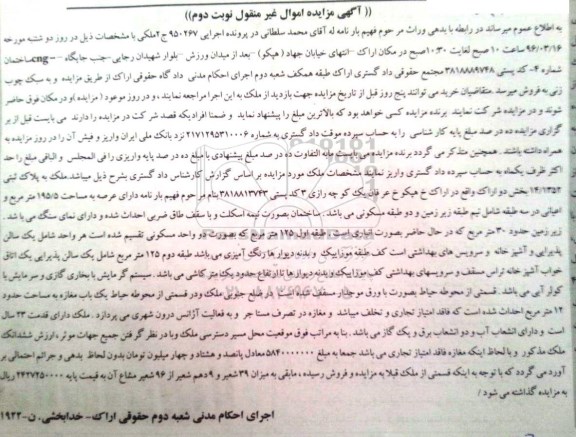 (( آگهی مزایده اموال غیر منقول نوبت دوم))
به اطلاع عموم میرساند در رابطه با بدهی وراث مرحوم فهیم بارنامه له آقای محمد سلطانی در پرونده اجرایی ۹۵۰۲۶۷ ج۲ملکی با مشخصات ذیل در روز دو شنبه مورخه
۹۶/۰۳/۱۶ ساعت ۱۰ صبح لغایت ۱۰:۳۰ صبح در مکان اراک -انتهای خیابان جهاد ( هپکو) -بعد از میدان ورزش -بلوار شهیدان رجایی-جنب جایگاه cng-ساختمان
شماره ۴- کد پستی ۳۸۱۸۸۸۹۷۴۸ مجتمع حقوقی دادگستری اراک طبقه همکف شعبه دوم اجرای احکام مدنی دادگاه حقوقی اراک از طریق مزایده و به سبک چوب
زنی به فروش میرسد .متقاضیان خرید می توانند پنج روز قبل از تاریخ مزایده جهت بازدید از ملک به این اجرا مراجعه نمایند ، و در روز موعود ( مزایده )و در مکان فوق حاضر
شوند و در مزایده شرکت نمایند برنده مزایده کسی خواهد بود که بالاترین مبلغ را پیشنهاد نماید و ضمنا افرادیکه قصد شرکت در مزایده را دارند می بایست قبل از بر
گزاری مزایده ده در صد مبلغ پایه کارشناسی را به حساب سپرده موقت دادگستری به شماره ۲۱۷۱۲۹۵۳۱۰۰۰۶ نزد بانک ملی ایران واریز و فیش آن را در روز مزایده به
همراه داشته باشند . همچنین متذکر می گردد برنده مزایده می بایست مابه التفاوت ده در صد مبلغ پیشنهادی با مبلغ ده در صد پایه واریزی را فی المجلس و الباقی مبلغ را حد
اکثر ظرف یکماه به حساب سپرده دادگستری واریز نماید. مشخصات ملک مورد مزایده بر اساس گزارش کارشناس دادگستری بشرح ذیل میباشد.ملک به پلاک ثبتی
بخش دو اراک واقع در اراک خ هپکو خ عرفان یک کوچه رازی ۳ کد پستی ۳۸۱۸۸۱۳۷۴۳ بنام مرحوم فهیم بارنامه دارای عرصه به مساحت ۱۹۵/۵ متر مربع و
اعیانی در سه طبقه شامل نیم طبقه زیر زمین و دو طبقه مسکونی می باشد . ساختمان بصورت نیمه اسکلت و با سقف طاق ضربی احداث شده و دارای نمای سنگ می باشد .
زیر زمین حدود ۳۰ متر مربع که در حال حاضر بصورت انباری است. طبقه اول ۱۲۵ متر مربع که بصورت دو واحد مسکونی تقسیم شده است هر واحد شامل یک سالن
پذیرایی و آشپز خانه و سرویس های بهداشتی است کف طبقه موزاییک و بدنه دیوار ها رنگ آمیزی می باشد طبقه دوم ۱۲۵ متر مربع شامل یک سالن پذیرایی یک اتاق
خواب آشپز خانه تراس مسقف و سرویسهای بهداشتی کف موزاییک و بدنه دیوار ها تا ارتفاع حدود یک متر کاشی می باشد. سیستم گرمایش با بخاری گازی و سرمایش با
کولر آبی می باشد. قسمتی از محوطه حیاط بصورت با ورق موجدار مسقف شده است .در ضلع جنوبی ملک ودر قسمتی از محوطه حیاط یک باب مغازه به مساحت حدود
۱۲ متر مربع احداث شده است که فاقد امتیاز تجاری و تخلف میباشد و مغازه در تصرف مستاجر و به فعالیت آژانس درون شهری می پردازد . ملک دارای قدمت ۲۳ سال
است و دارای انشعاب آب و دو انشعاب برق و یک گاز می باشد . بنا به مراتب فوق موقعیت محل مسیر دسترسی ملک وبا در نظر گرفتن جمیع جهات موثر ،ارزش ششدانگ
ملک مذکور و با لحاظ اینکه مغازه فاقد امتیاز تجاری می باشد جمعا به مبلغ ۵۸۴۰۰۰۰۰۰۰ معادل پانصد و هشتاد و چهار میلیون تومان بدون لحاظ بدهی و جرائم احتمالی بر
آورد می گردد که با توجه به اینکه قسمتی از ملک قبلا به مزایده و فروش رسیده ، مابقی به میزان ۳۹ شعیر و ۹ دهم شعیر از ۹۶ شعیر مشاع آن به قیمت پایه ۲۴۲۷۲۵۰۰۰۰ ریال
به مزایده گذاشته می شود /
اجرای احکام مدنی شعبه دوم حقوقی اراک- خدابخشی. ن-۱۹۲۲